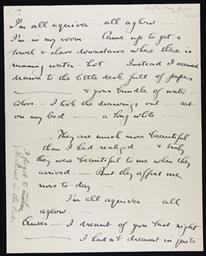 I'm all aquiver — all aglow
I'm in my room Came up to get a
towel & show downstairs where there is
running water hot. Instead I seemed
drawn to the little desk full of papers
— & your bundle of water
colors — I took the drawings out — sat
on my bed — a long while
They are much more beautiful
than I had realized & truly
they were beautiful to me when they
arrived — But they affect me
more to-day —
I'm all aquiver — all
aglow.
— I dreamt of you last night
— I hadn't dreamt in quite